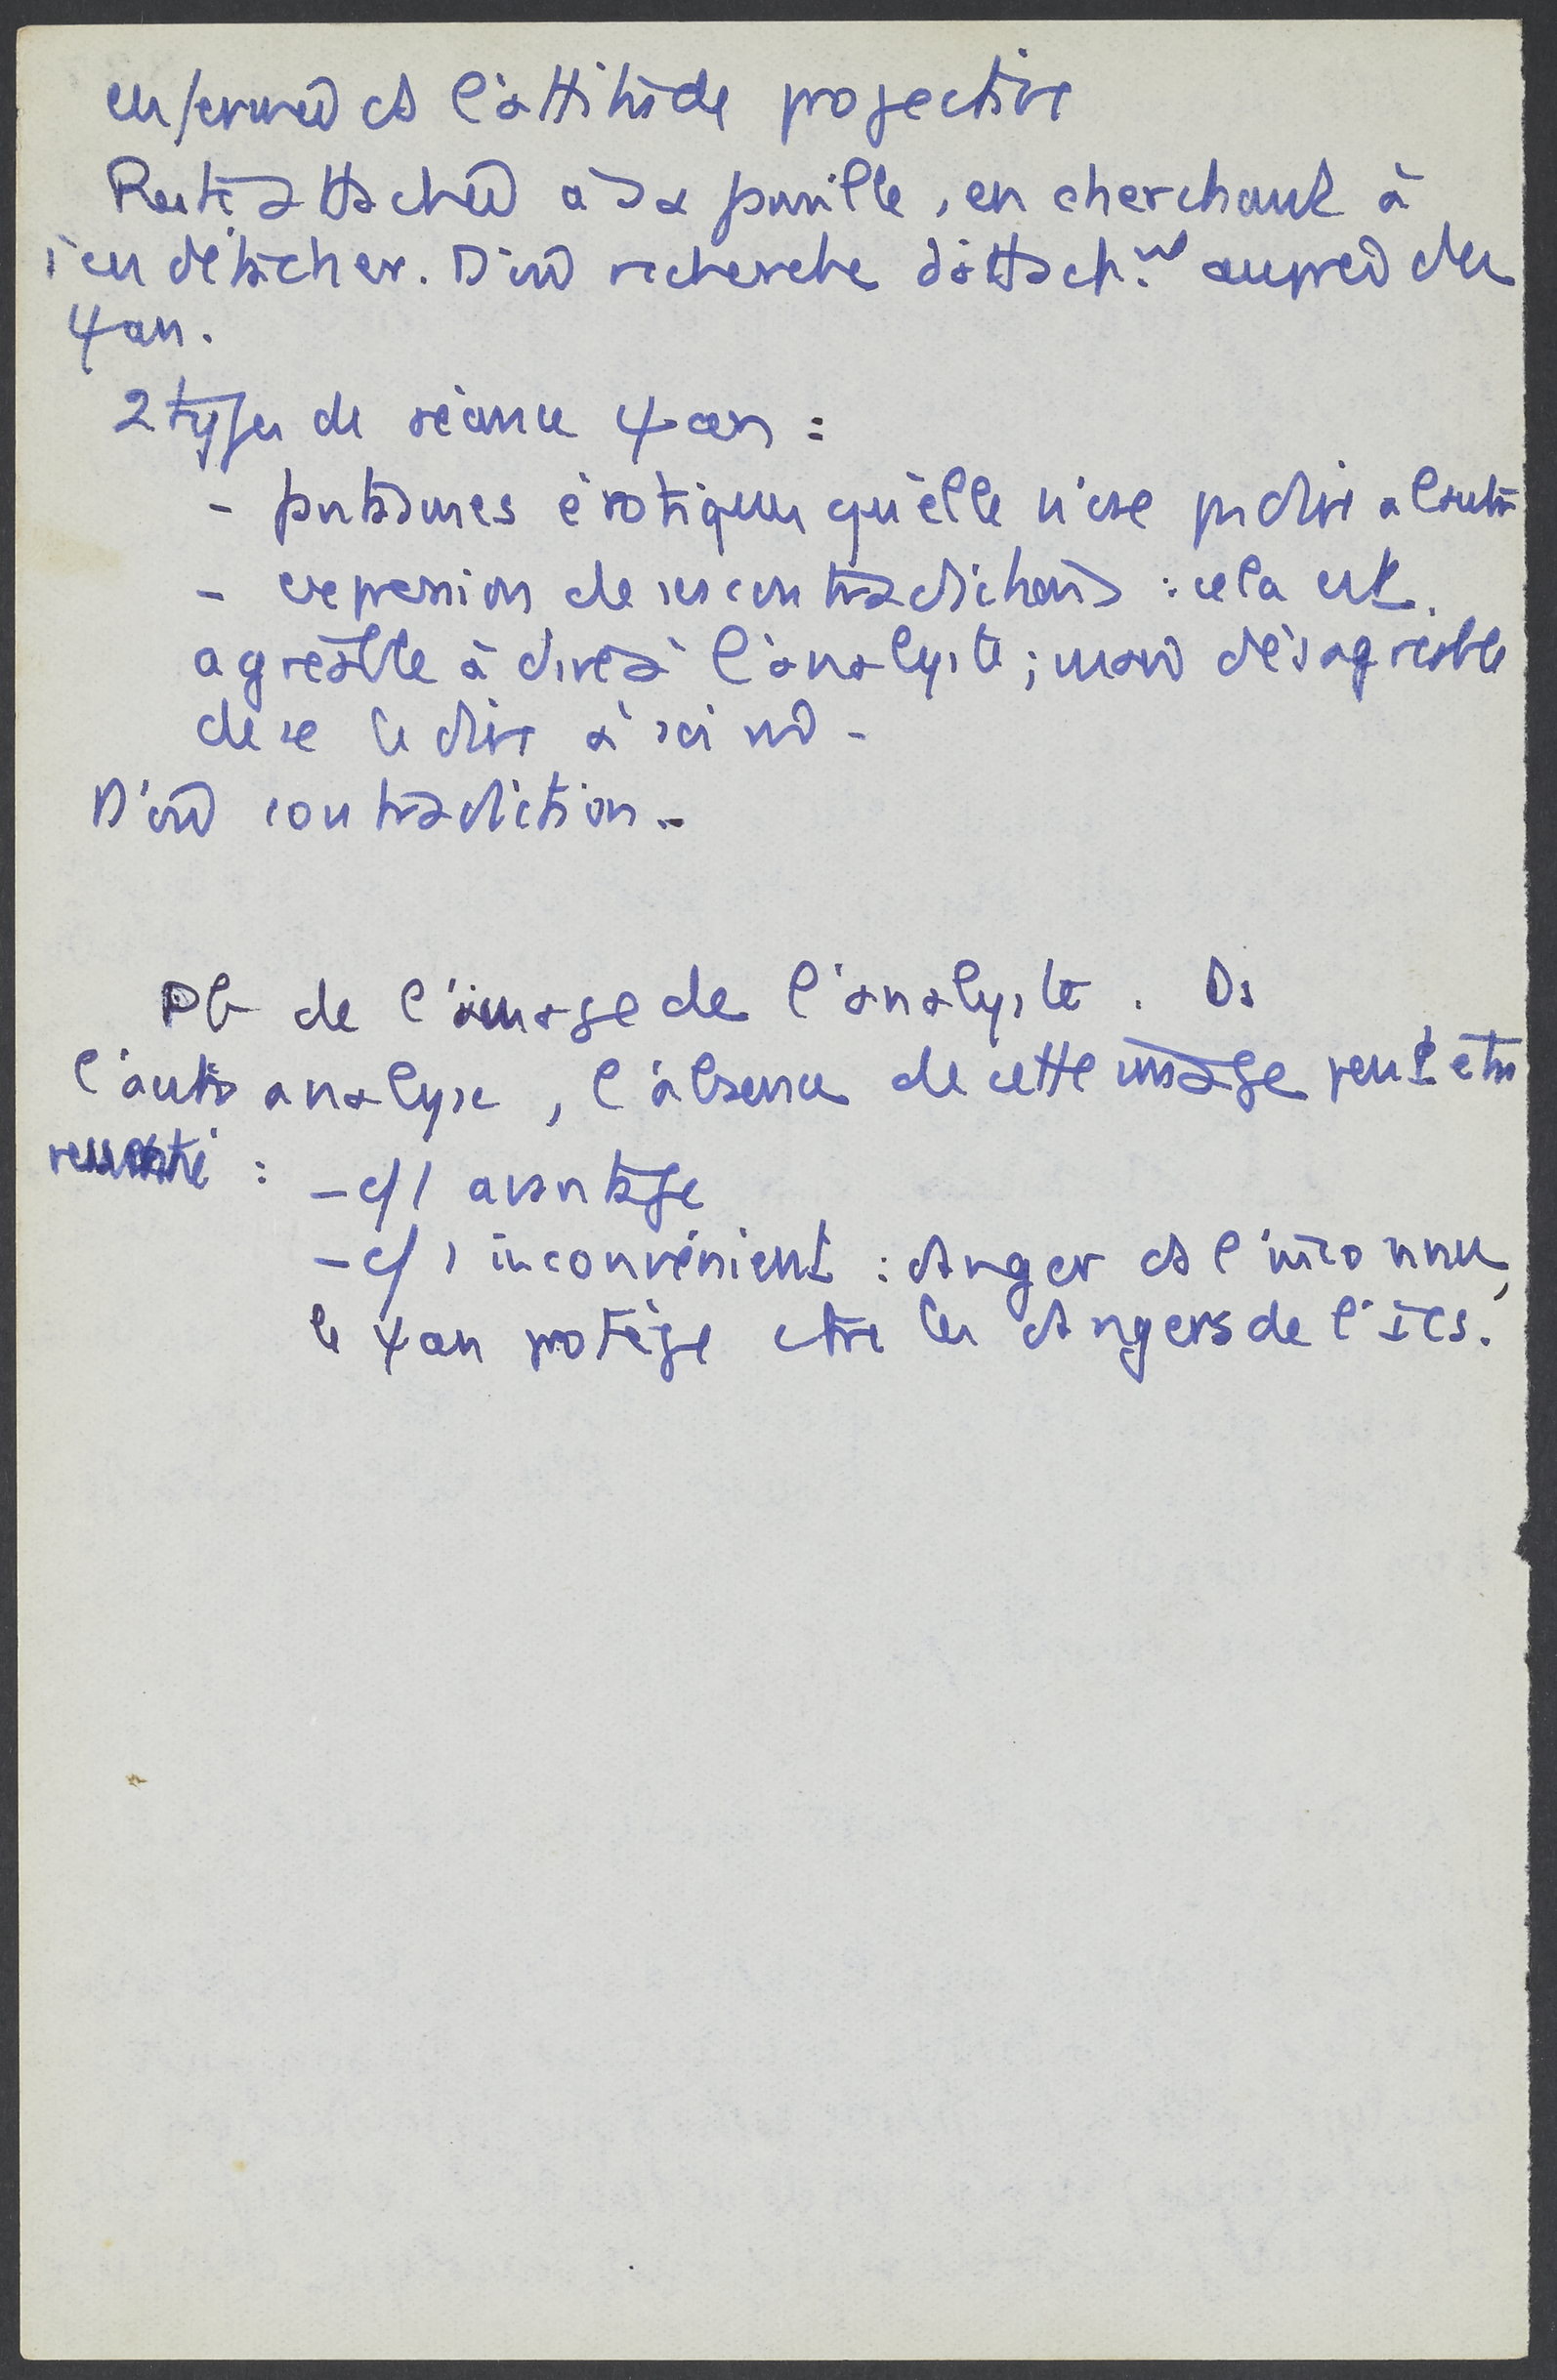 enfermée ds l'attitude projective
Reste attachée à sa famille, en cherchant à
s'en détacher. D'où recherche d'attach.nt auprès des
ψan.
2 types de séance ψan :
- fantasmes érotiques qu'elle n'ose pas dire à l'autre
- expression de ses contradictions : cela est
agréable à dire à l'analyste ; mais désagréable
de se le dire à soi
D'où contradiction.
Pb de l'image de l'analyste. Ds
l'auto analyse, l'absence de cette image peut être
ressentie :
- c/ avantage
- c/ inconvénient : danger ds l'inconnu,
le ψan protège ctre les dangers de l'Ics.